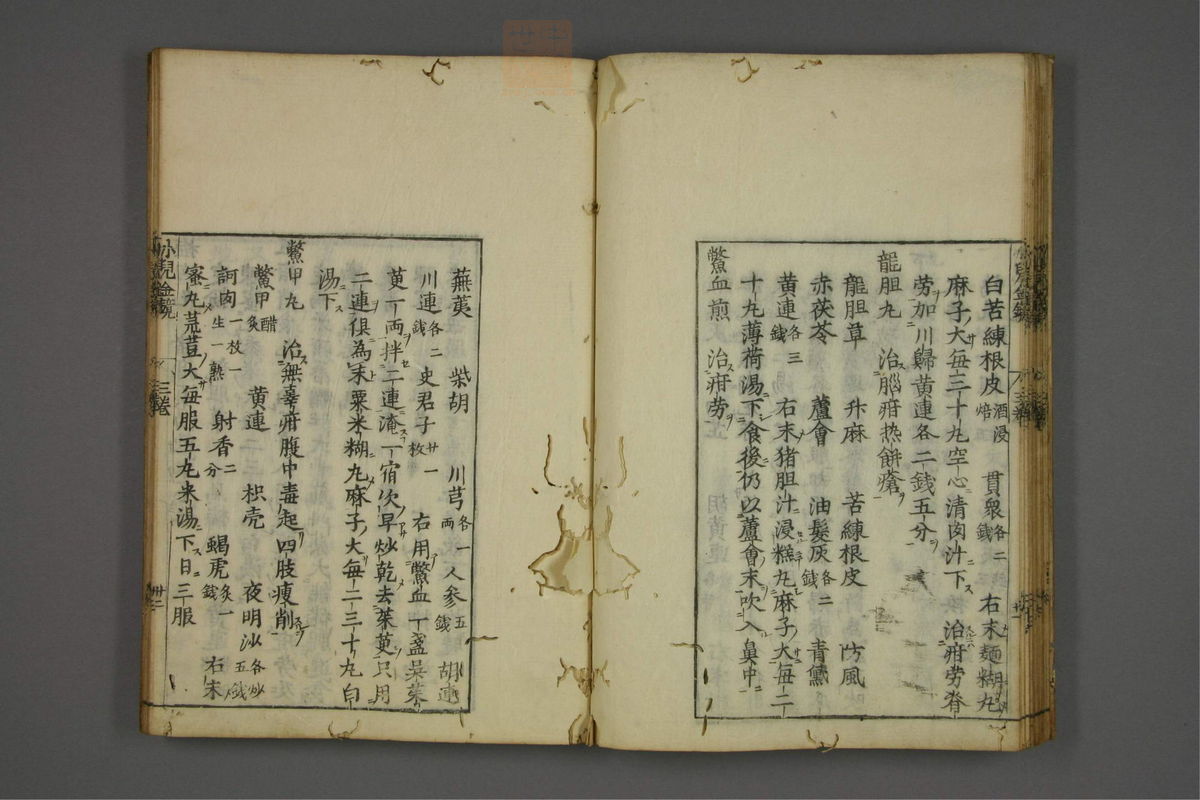 白苦練根皮酒浸焙 貫衆各二錢 右末麵糊丸
麻子大每三十九空心清肉汁下 治疳勞脊
勞加川歸黃連各二錢五分
龍胆丸 治腦疳热餅瘡
龍胆草 升麻 苦練根皮 防風
赤茯苓 蘆會 油髮灰各二錢 青黛
黃連各三錢 右末猪胆汁浸糕丸麻子大每二
十九薄荷湯下食後仍以蘆會末吹入鼻中
鱉血煎 治疳劳
蕪荑 柴胡 川芎各一両 人參五錢 胡連
川連各二錢 史君子廿一枚 右用鱉血一盞吴茱
萸一両拌二連淹一宿次早炒乾去茱萸只用
二連俱為末粟米糊丸麻子大每二三十九白
湯下
鱉甲丸 治無辜疳腹中毒起四肢瘦削
鱉甲醋炙 黃連 枳壳 夜明沙各炒五錢
訶肉一枚一生一熟 射香二分 蝎虎炙一錢 右末
蜜丸荒荳大每服五丸米湯下日三服
小兒金鏡 三卷